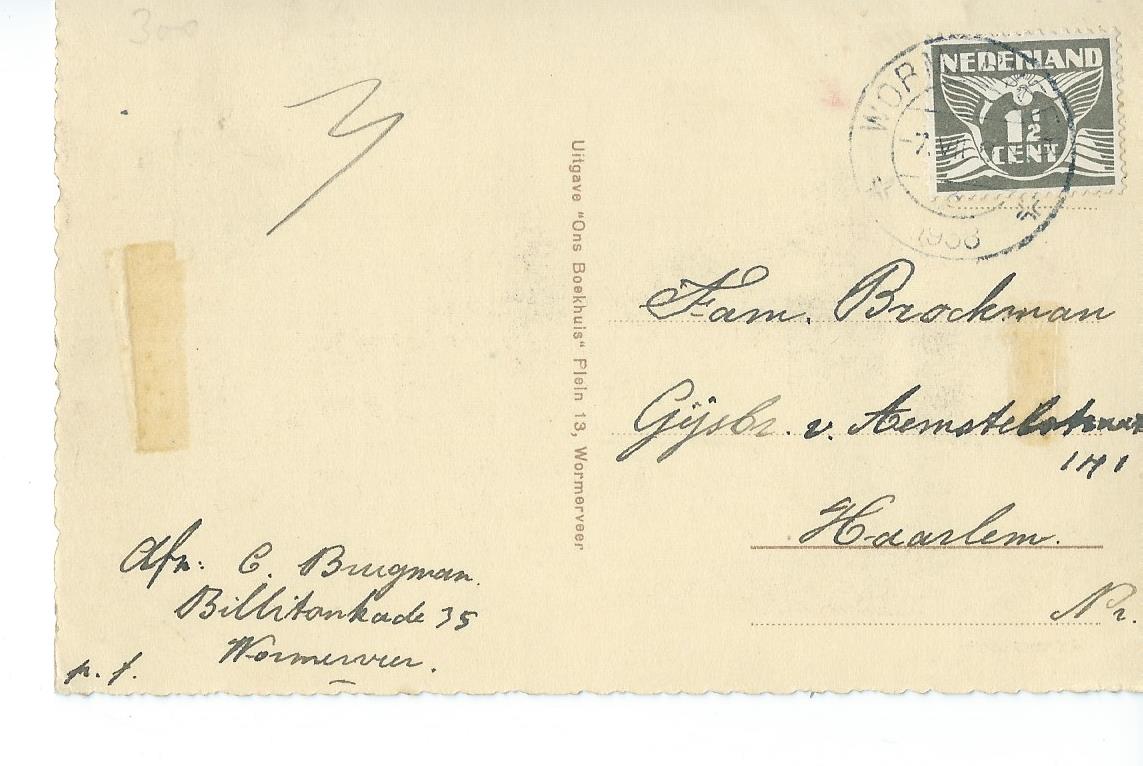 300
NEDERLAND
1½
CENT
WORM
1938
Uitgave "Ons Boekhuis" Plein 13, Wormerveer
Fam. Brockman
Gijsbr. v. Aemstelstraat
141
Haarlem.
Nr.
Afz: C. Brugman.
Billitonkade 35
Wormerveer.
p. f.